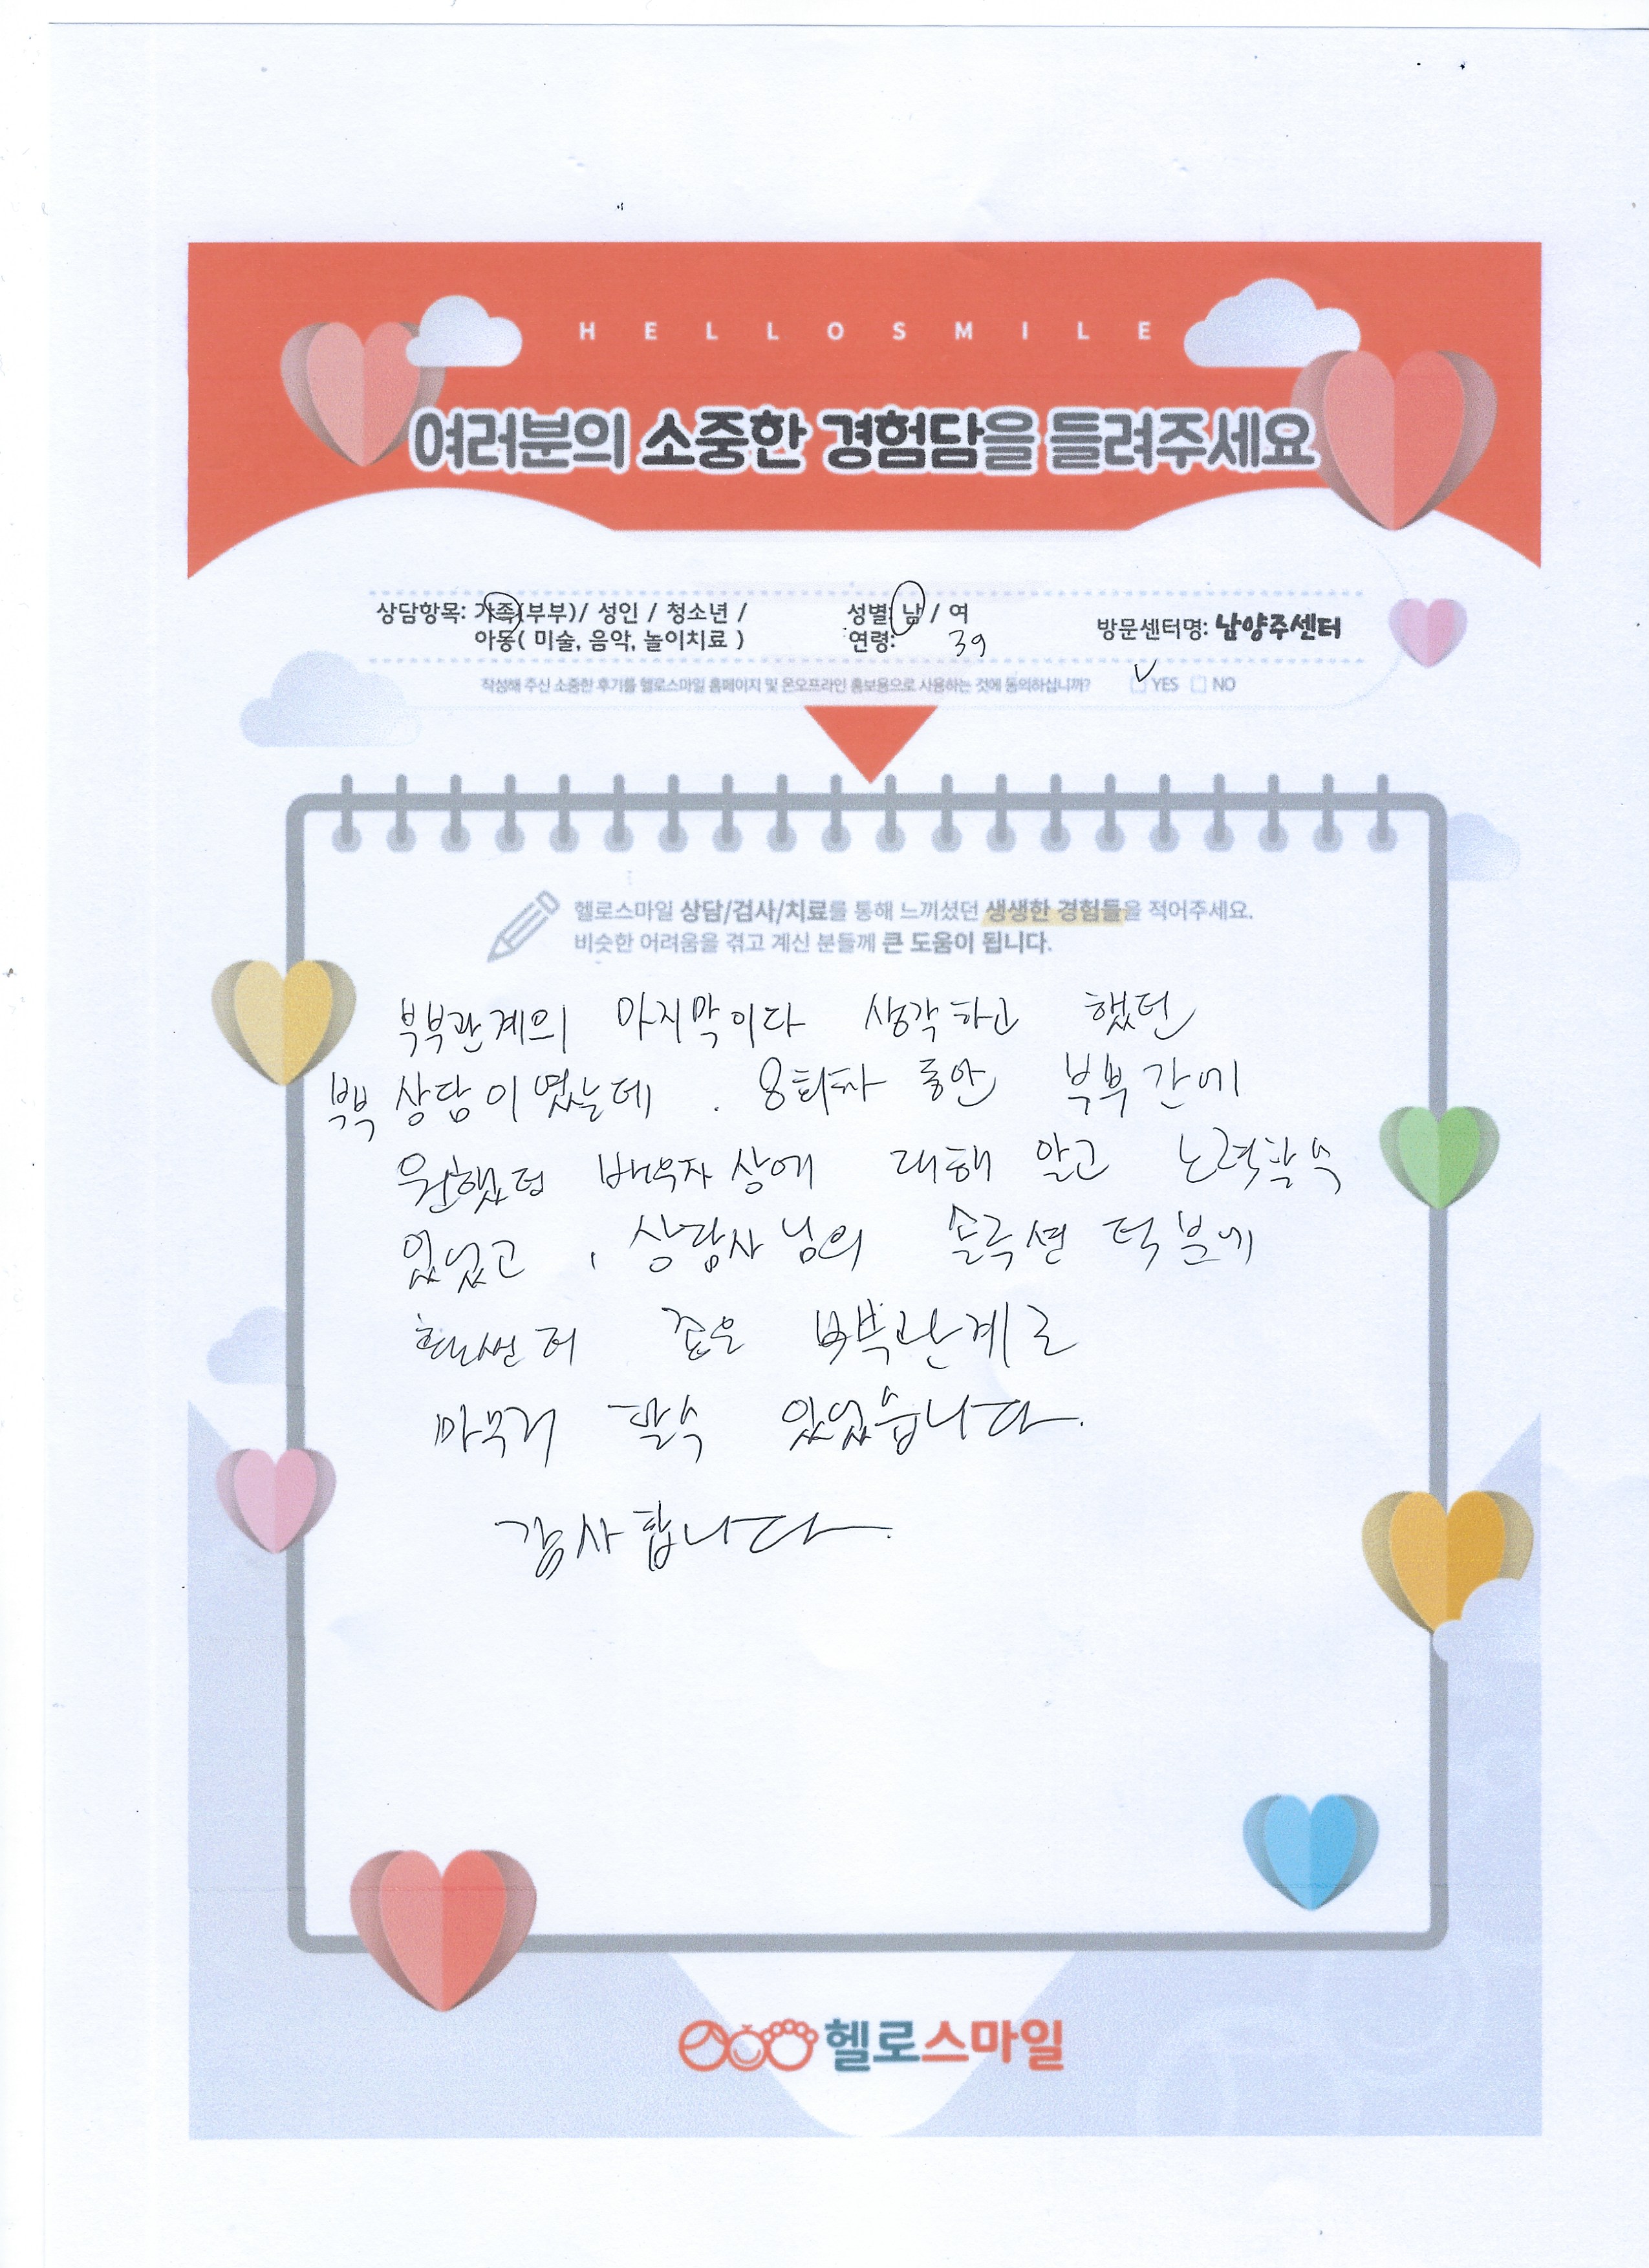 HELLOSMILE
여러분의 소중한 경험담을 들려주세요
상담항목: 가족(부부)/ 성인 / 청소년 /
아동( 미술, 음악, 놀이치료 )
성별: 남 / 여
연령: 39
방문센터명: 남양주센터
작성해 주신 소중한 후기를 헬로스마일 홈페이지 및 온오프라인 홍보용으로 사용하는 것에 동의하십니까? YES NO
헬로스마일 상담/검사/치료를 통해 느끼셨던 생생한 경험들을 적어주세요.
비슷한 어려움을 겪고 계신 분들께 큰 도움이 됩니다.
부부관계의 마지막이다 생각하고 했던
부부 상담이였는데. 8회차 동안 부부간에
원했던 배우자상에 대해 알고 노력할수
있었고, 상담사님의 솔루션 덕분에
훨씬 더 좋은 부부관계로
마무리 할수 있었습니다.
감사합니다.
헬로스마일